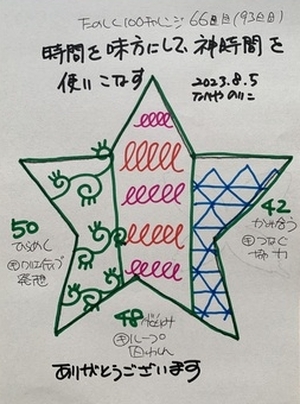 たのしく100チャレンジ 66日目(93日目)
時間を味方にして、神時間を
使いこなす
2023.8.5
50
ひらめく
発想
42
かみ合う
つなぐ
協力
48
ループ
ありがとうございます